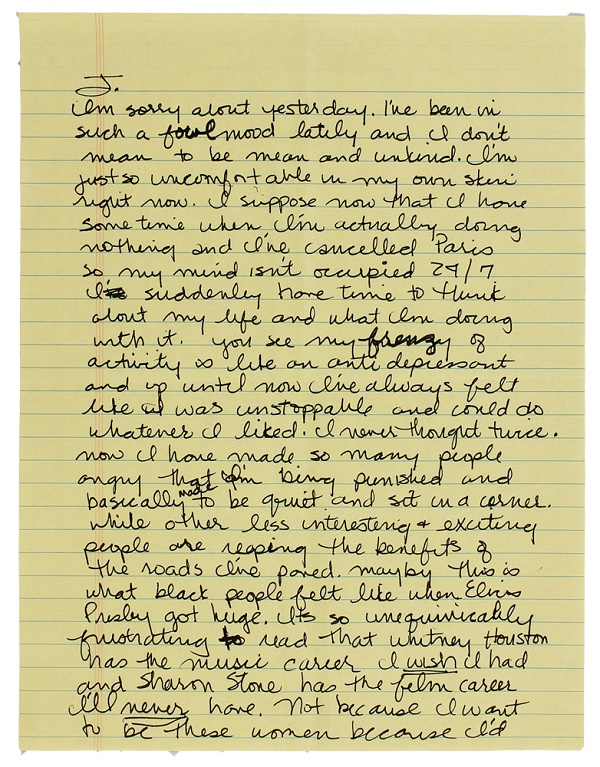 J.
I'm sorry about yesterday. I've been in
such a fowl mood lately and I don't
mean to be mean and unkind. I'm
just so uncomfortable in my own skin
right now. I suppose now that I have
some time when I'm actually doing
nothing and I've cancelled Paris
so my mind isn't occupied 24/7
I suddenly have time to think
about my life and what I'm doing
with it. you see my frenzy of
activity is like an anti depressant
and up until now I've always felt
like I was unstoppable and could do
whatever I liked. I never thought twice.
now I have made so many people
angry that I'm being punished and
basically made to be quiet and sit in a corner.
while other less interesting + exciting
people are reaping the benefits of
the roads I've paved. mayby this is
what black people felt like when Elvis
Presley got huge. It's so unequivicably
frustrating to read that whitney Houston
has the music career I wish I had
and Sharon Stone has the film career
I'll never have. Not because I want
to be these women because I'd